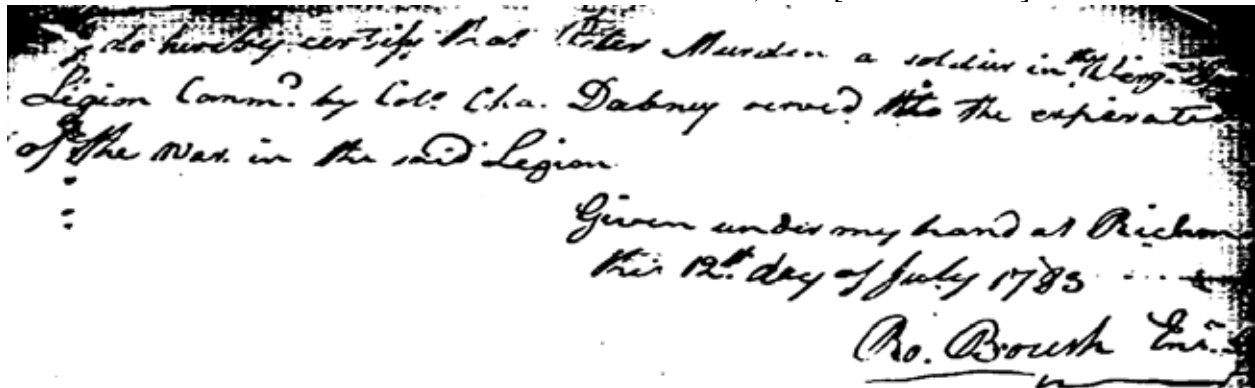 do hereby certify that Peter Murden a soldier in the Virga
Legion Commd. by Colo. Cha. Dabney served to the expiratio
of the War in the said Legion
Given under my hand at Richmon
this 12th day of July 1783
Ro. Boush Ens.